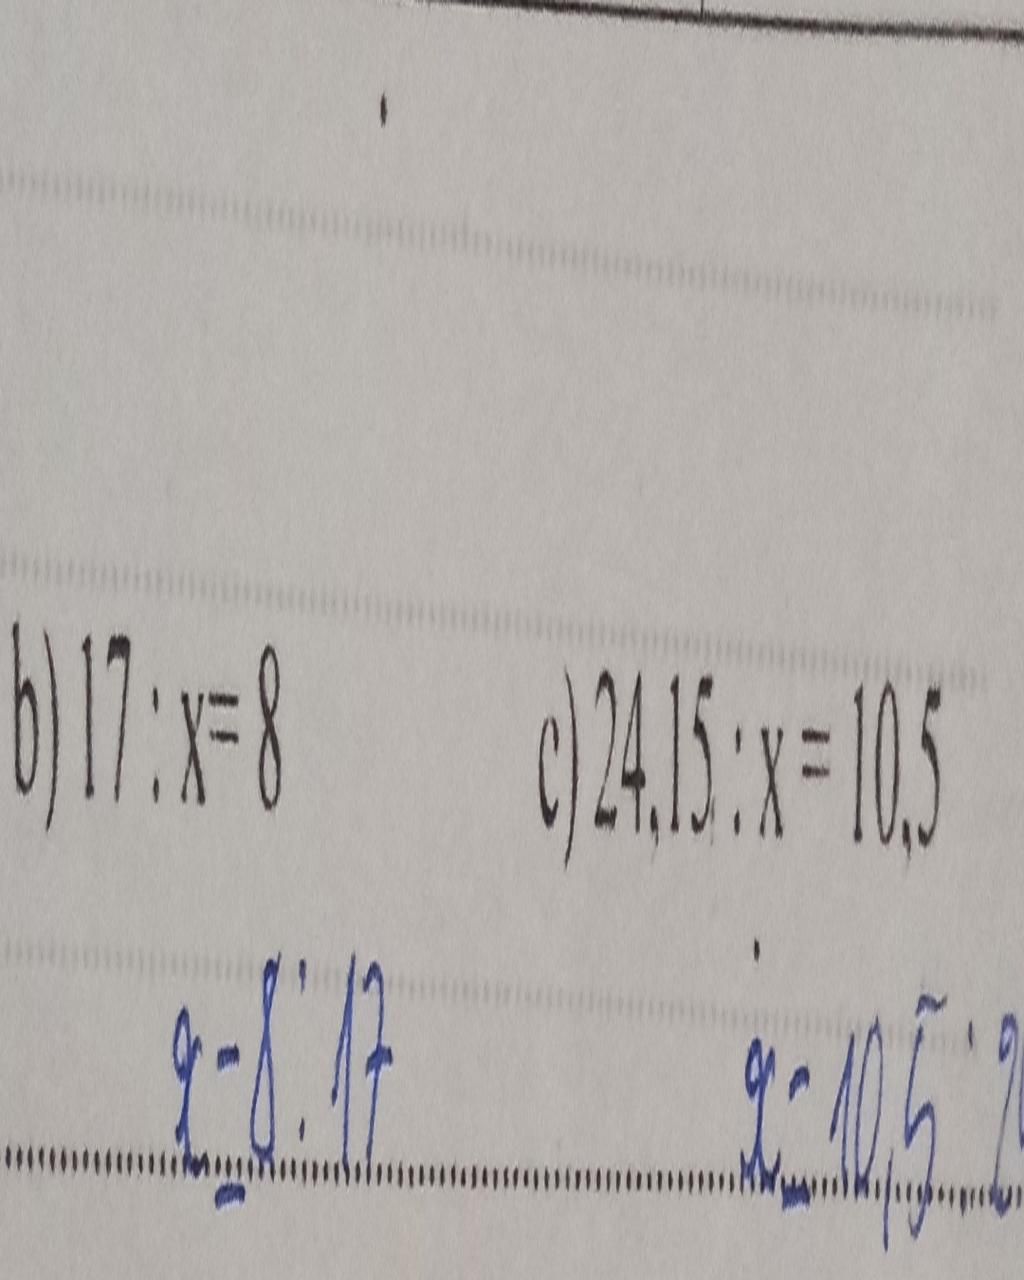 b) 17 : x = 8
c) 24,15 : x = 10,5
x = 8 : 17
x = 10,5 : 2